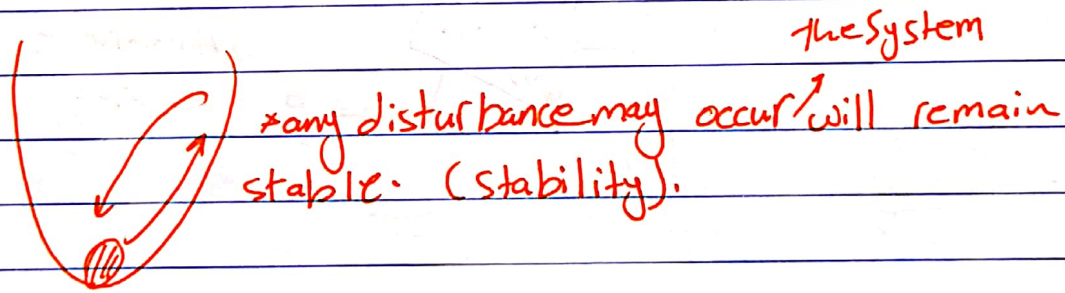 the System
*any disturbance may occur will remain
stable. (stability).